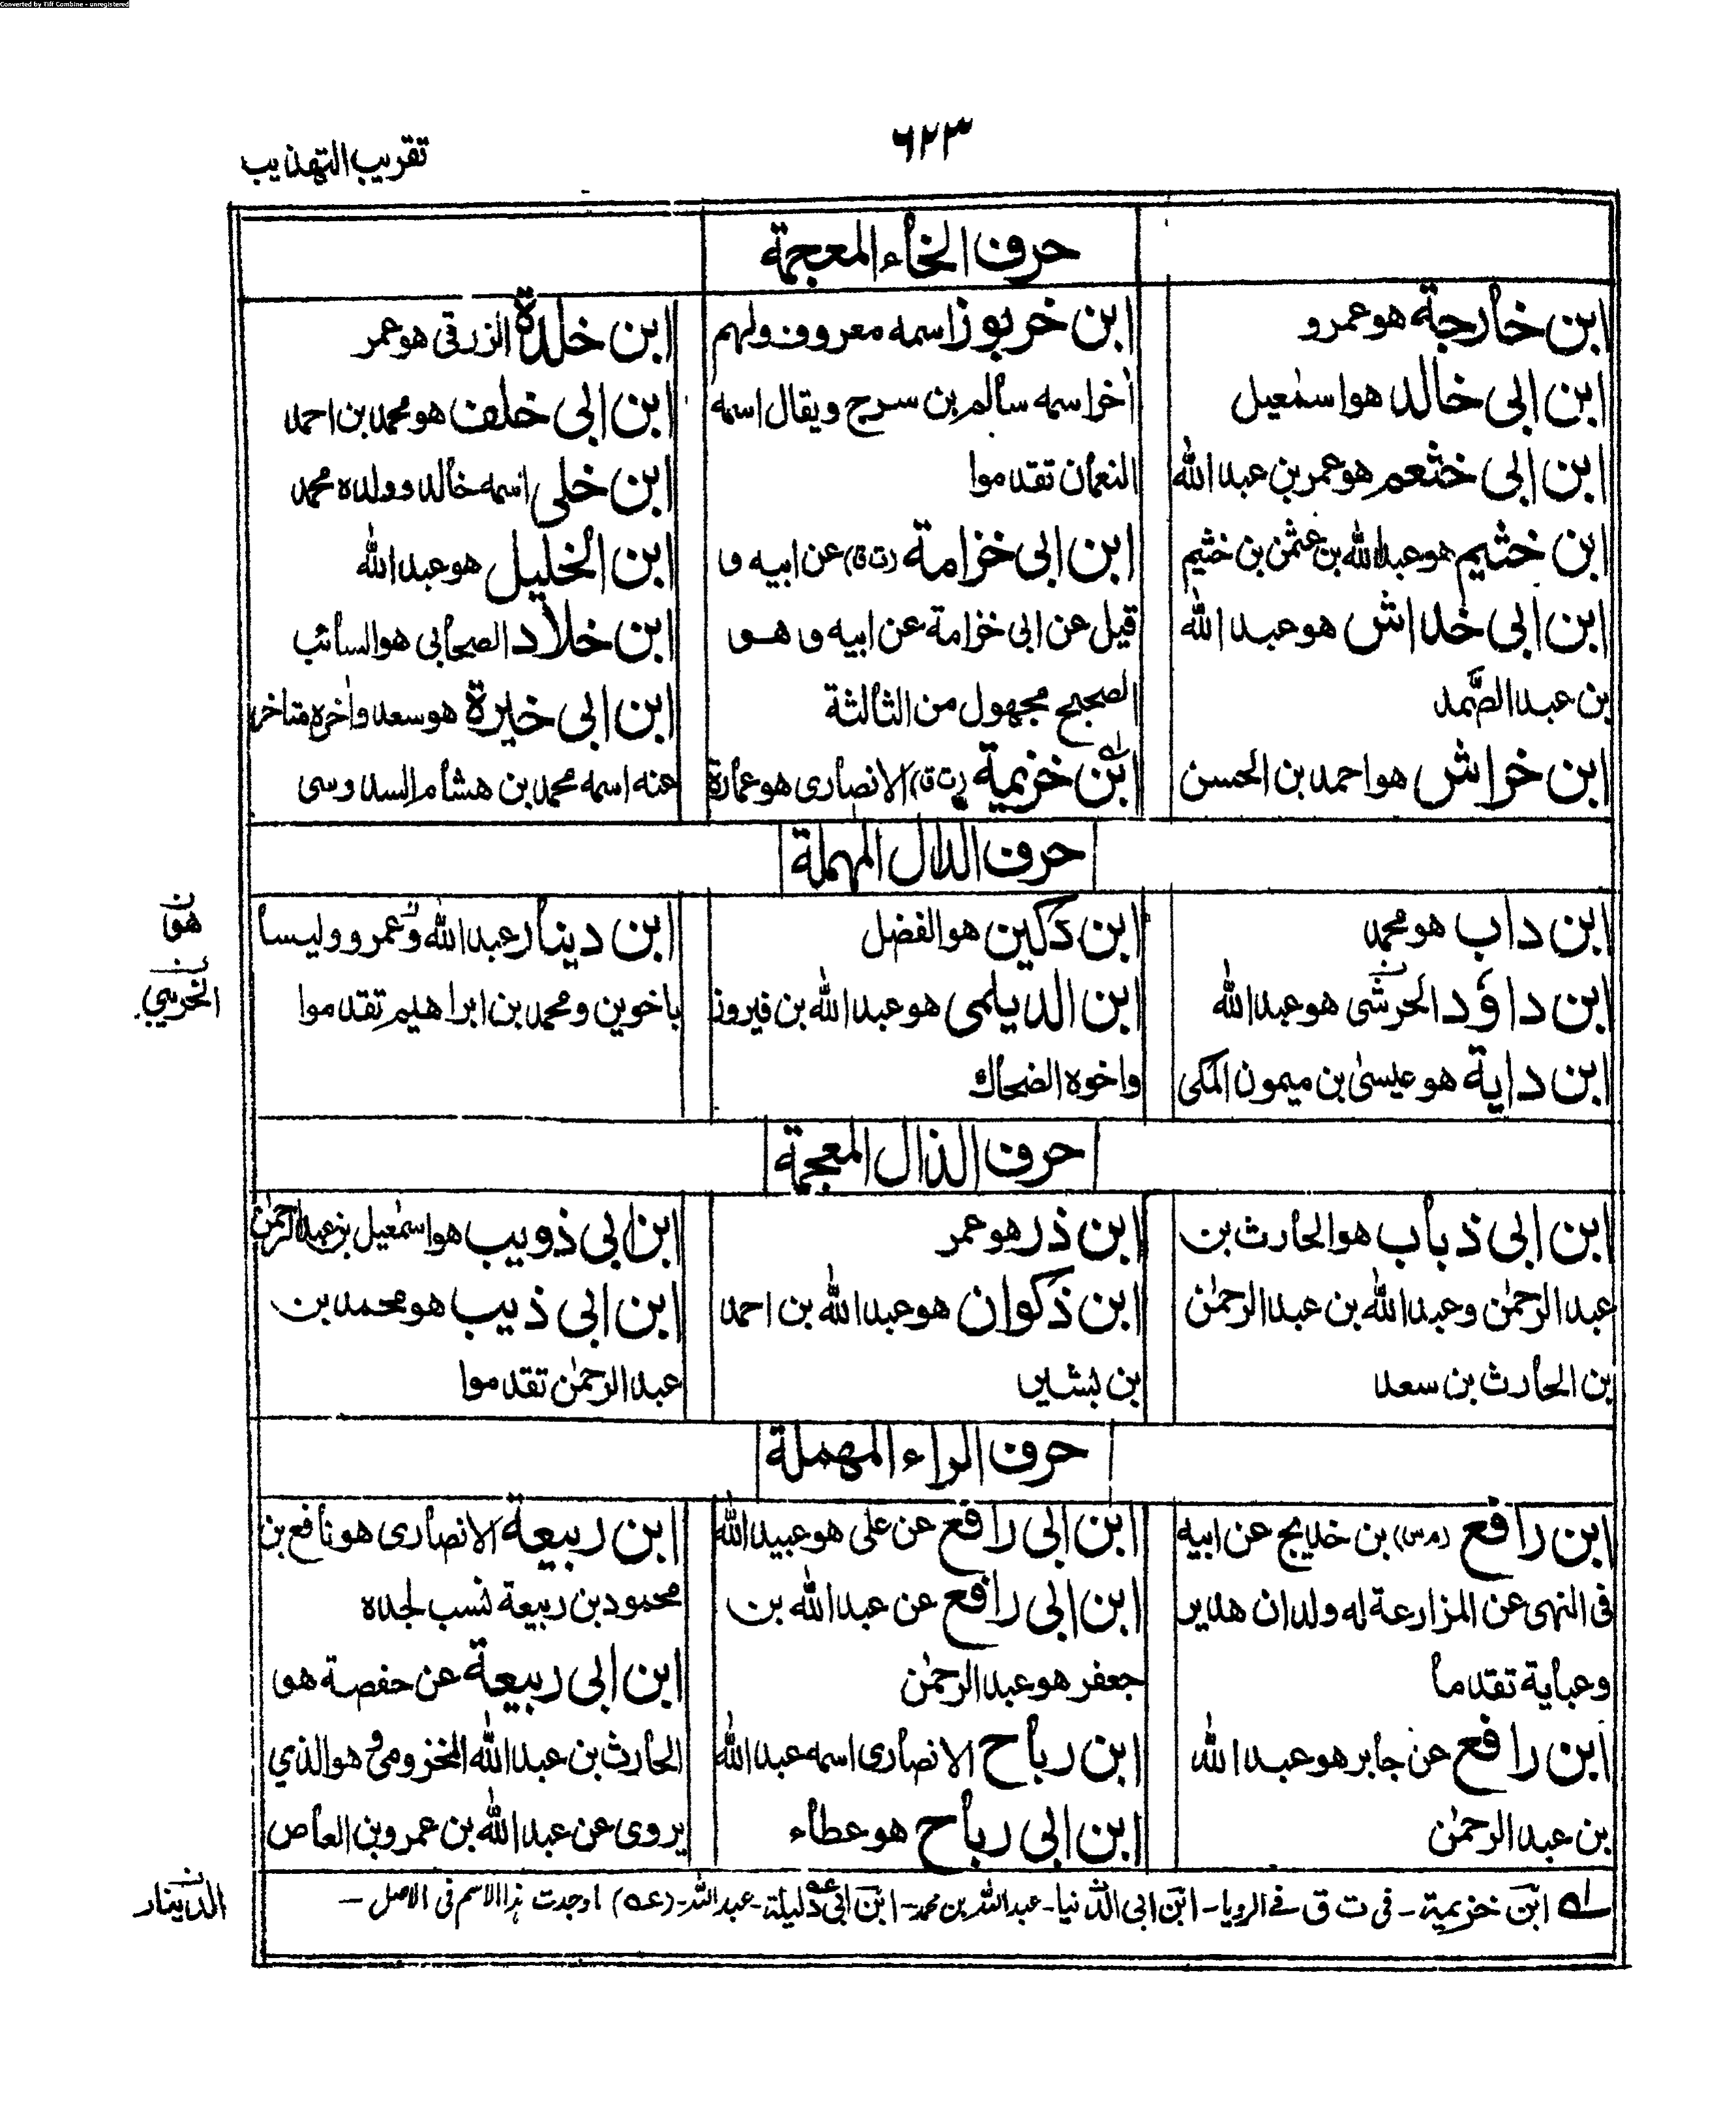 Converted by Tiff Combine - unregistered
٦٢٣
تقريب التهذيب
حرف الخاء المعجمة
ابن خارجة هو عمرو
ابن ابى خالد هو اسمٰعيل
ابن ابى خثعم هو عمر بن عبد الله
ابن خثيم هو عبد الله بن عثمٰن بن خثيم
ابن ابى خداش هو عبد الله
بن عبد الصَّمد
ابن خراش هو احمد بن الحسن
ابن خربوز اسمه معروف ولهم
اٰخر اسمه سالم بن سرج ويقال اسمه
النعمان تقدموا
ابن ابى خزامة (ت ق) عن ابيه و
قيل عن ابى خزامة عن ابيه و هو
الصحيح مجهول من الثالثة
ابن خزيمة (ت ق) الانصارى هو عمارة
ابن خلدة الزرقى هو عمر
ابن ابى خلف هو محمد بن احمد
ابن خلى اسمه خالد وولده محمد
ابن الخليل هو عبد الله
ابن خلاد الصحابى هو السائب
ابن ابى خيرة هو سعد واٰخره متاخر
عنه اسمه محمد بن هشام السدوسى
حرف الدال المهملة
ابن داب هو محمد
ابن داؤد الحرشى هو عبد الله
ابن داية هو عيسىٰ بن ميمون المكى
ابن دكين هو الفضل
ابن الديلمى هو عبد الله بن فيروز
واخوه الضحاك
ابن دينار عبد الله وعمرو وليسا
باخوين ومحمد بن ابراهيم تقدموا
هوٓ
الخريبي
حرف الذال المعجمة
ابن ابى ذباب هو الحارث بن
عبد الرحمٰن وعبد الله بن عبد الرحمٰن
بن الحارث بن سعد
ابن ذر هو عمر
ابن ذكوان هو عبد الله بن احمد
بن بشير
ابن ابى ذويب هو اسمٰعيل بن عبد الرحمٰن
ابن ابى ذيب هو محمد بن
عبد الرحمٰن تقدموا
حرف الراء المهملة
ابن رافع (م س) بن خديج عن ابيه
فى النهى عن المزارعة له ولدان هدير
وعباية تقدما
ابن رافع عن جابر هو عبد الله
بن عبد الرحمٰن
ابن ابى رافع عن على هو عبيد الله
ابن ابى رافع عن عبد الله بن
جعفر هو عبد الرحمٰن
ابن رباح الانصارى اسمه عبد الله
ابن ابى رباح هو عطاء
ابن ربيعة الانصارى هو نافع بن
محمود بن ربيعة نسب لجده
ابن ابى ربيعة عن حفصة هو
الحارث بن عبد الله المخزومى وهو الذي
يروى عن عبد الله بن عمرو بن العاص
ابن خزيمة - فى ت ق فى الرويا - ابن ابى الدنيا - عبد الله بن محمد - ابن ابى دليلة - عبد الله - (عه) اوجدت هذا الاسم فى الاصل -
الدينار